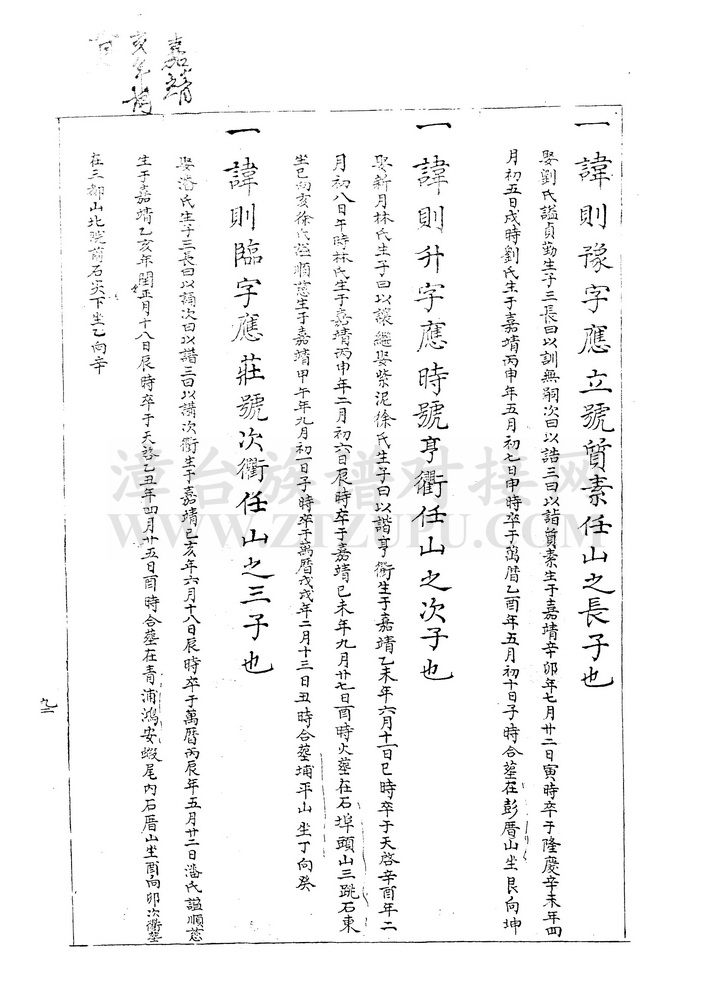 嘉靖
亥年
一諱則豫字應立號質素任山之長子也
娶劉氏謚貞勤生子三長曰以訓無嗣次曰以誥三曰以詣質素生于嘉靖辛卯年七月廿二日寅時卒于隆慶辛未年四
月初五日戌時劉氏生于嘉靖丙申年五月初七日申時卒于萬曆乙酉年五月初十日子時合塟在彭厝山坐艮向坤
一諱則升字應時號亨衢任山之次子也
娶新月林氏生子曰以讓繼娶紫泥徐氏生子曰以諧亨衢生于嘉靖乙未年六月十一日巳時卒于天啓辛酉年二
月初八日午時林氏生于嘉靖丙申年二月初六日辰時卒于嘉靖已未年九月廿七日酉時火塟在石埠頭山三跳石東
坐巳向亥徐氏謚順慈生于嘉靖甲午年九月初一日子時卒于萬曆戊戌年二月十三日丑時合塟埔平山坐丁向癸
一諱則臨字應莊號次衢任山之三子也
娶潘氏生子三長曰以誦次曰以諎三曰以講次衢生于嘉靖已亥年六月十八日辰時卒于萬曆丙辰年五月廿二日潘氏謚順慈
生于嘉靖乙亥年閏正月十八日辰時卒于天啓乙丑年四月廿五日酉時合塟在青浦鴻安蝦尾內石厝山坐酉向卯次衢塟
在三都山北院前石尖下坐乙向辛
九二
漳台族谱对接网
WWW.ZTZUPU.COM